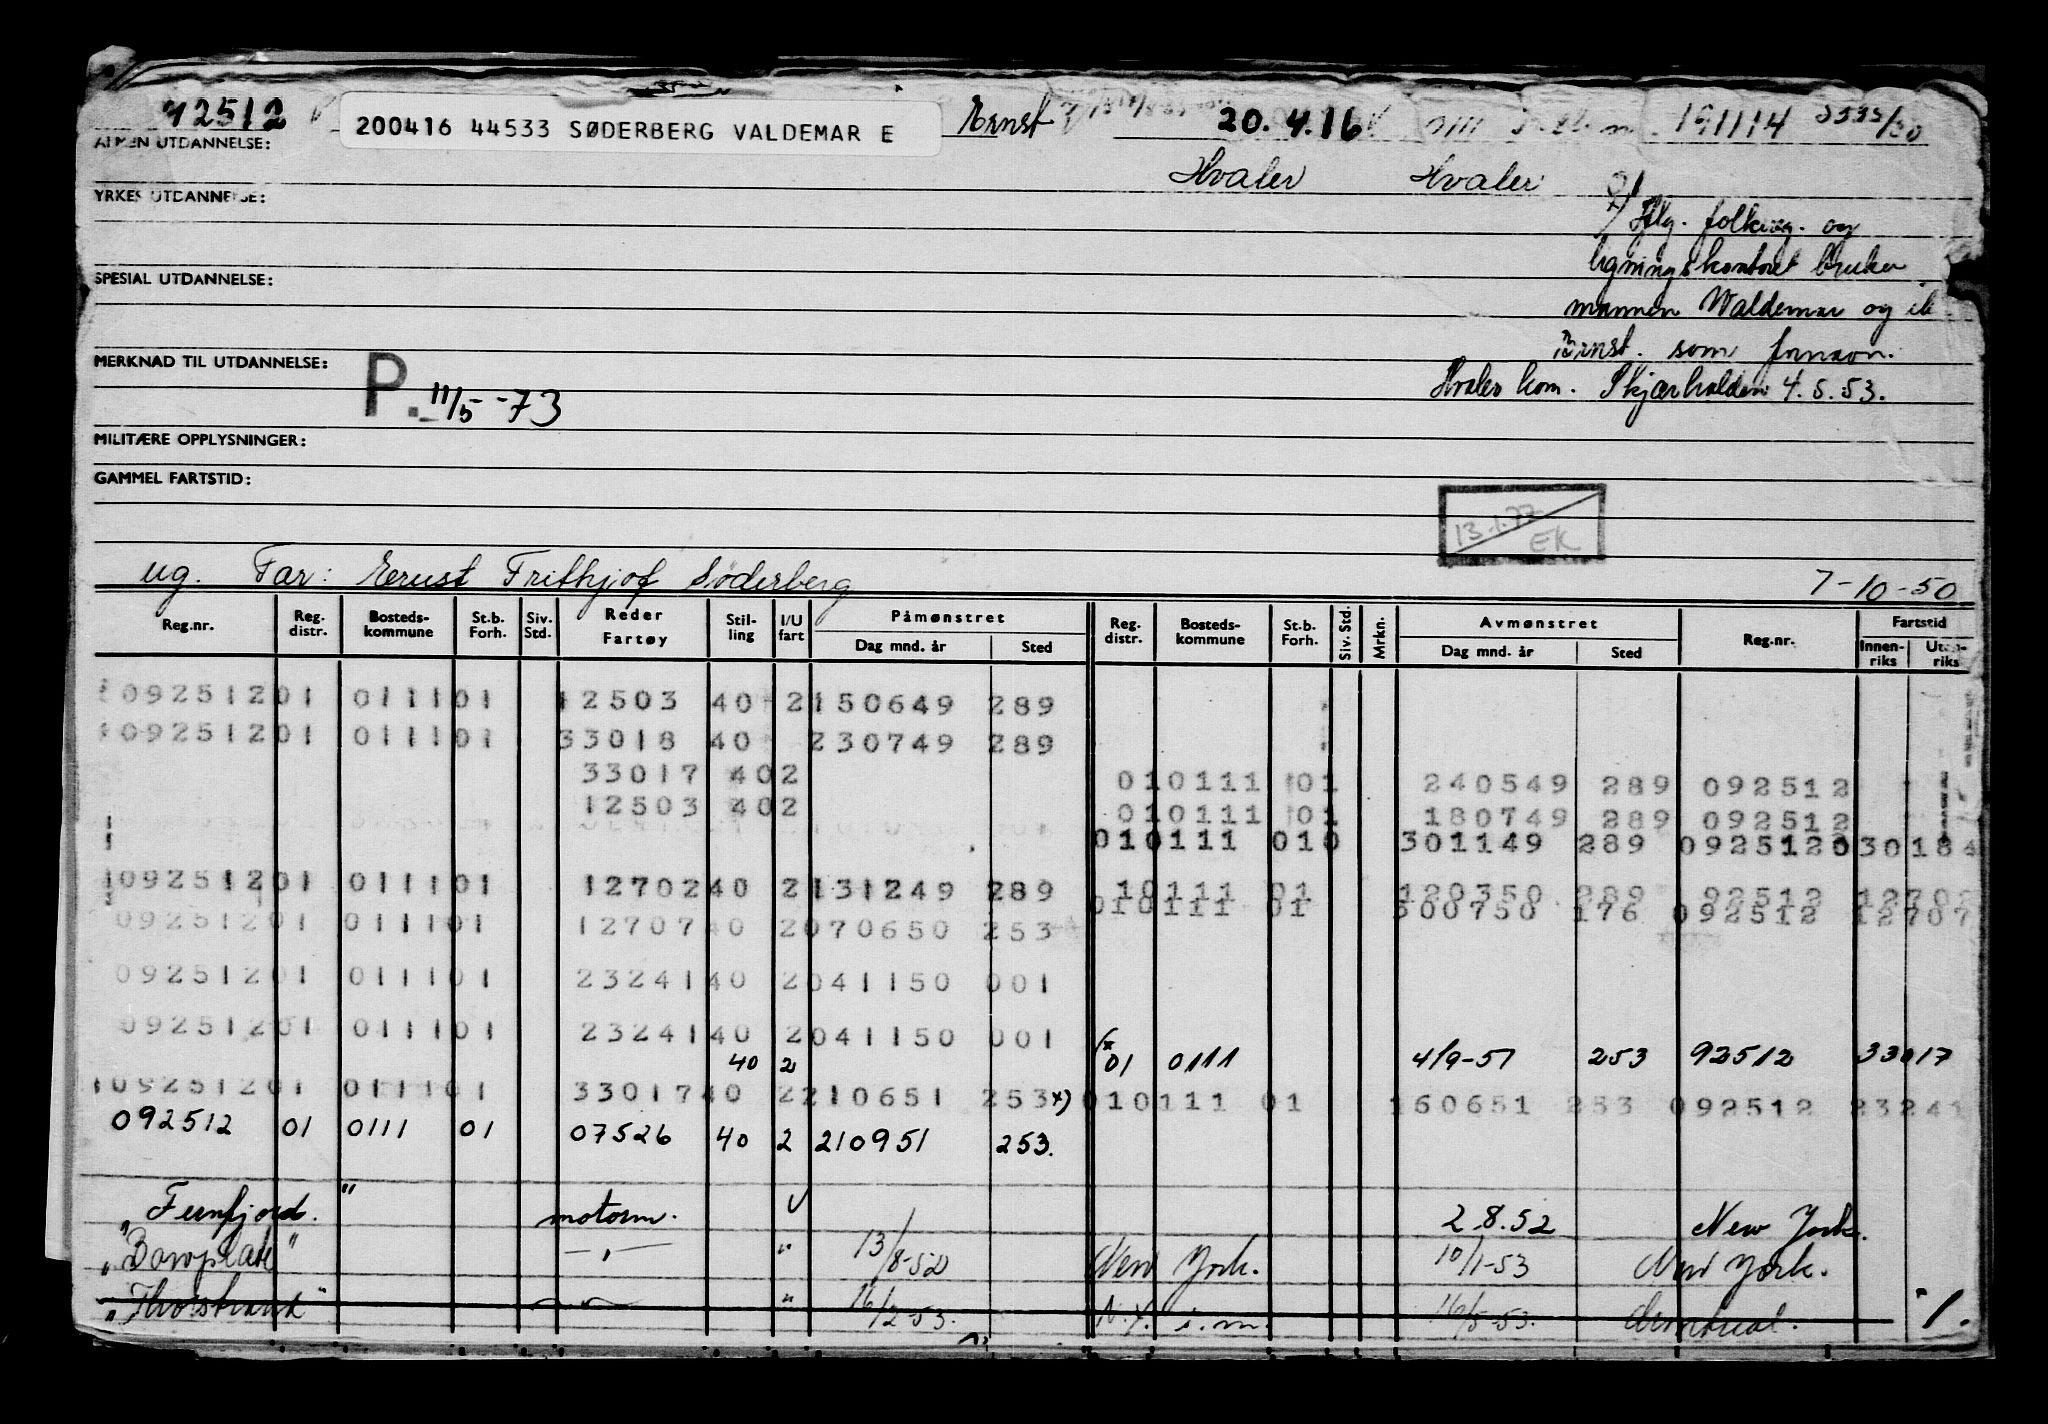 92512 200416 44533 SØDERBERG VALDEMAR E Ernst 20.4.16 191114 5535/50
ALMEN UTDANNELSE:
Hvaler Hvaler 01
YRKES UTDANNELSE:
x) Iflg. folkereg. og
ligningskontoret bruker
SPESIAL UTDANNELSE:
mannen Waldemar og ik
Ernst. som fornavn.
MERKNAD TIL UTDANNELSE:
P. 11/5-73
Hvaler kom. Skjærhalden 4.5.53.
MILITÆRE OPPLYSNINGER:
GAMMEL FARTSTID:
13.1.77
EK
ug. Far: Ernst Frithjof Søderberg 7-10-50
Reg.nr. Reg. distr. Bosteds-kommune St.b. Forh. Siv. Std. Reder Fartøy Stil-ling I/U fart Påmønstret Dag mnd. år Sted Reg. distr. Bosteds-kommune St.b. Forh. Siv. Std. Mrkn. Avmønstret Dag mnd. år Sted Reg.nr. Fartstid Innen-riks Uten-riks
092512 01 0111 01 12503 40 2 150649 289
092512 01 0111 01 33018 40 230749 289
33017 40 2 01 0111 01 240549 289 092512
12503 40 2 01 0111 01 180749 289 092512
01 0111 010 301149 289 092512 030184
092512 01 0111 01 12702 40 2 131249 289 10111 01 120350 289 92512 12702
01 0111 01 300750 176 092512 12707
092512 01 0111 01 12707 40 2 070650 253
092512 01 0111 01 23241 40 2 041150 001
092512 01 0111 01 23241 40 2 041150 001
40 2 (x 01 0111 4/9-51 253 92512 33017
092512 01 0111 01 33017 40 2 210651 253 x) 01 0111 01 160651 253 092512 23241
092512 01 0111 01 07526 40 2 210951 253.
"Fernfjord." motorm. U 2.8.52 New York.
"Bowplate" —"— " 13/8-52 New York. 10/1-53 New York.
"Thorstrand" —"— " 16/2-53. N.Y. i.m. 16/5-53. 1.